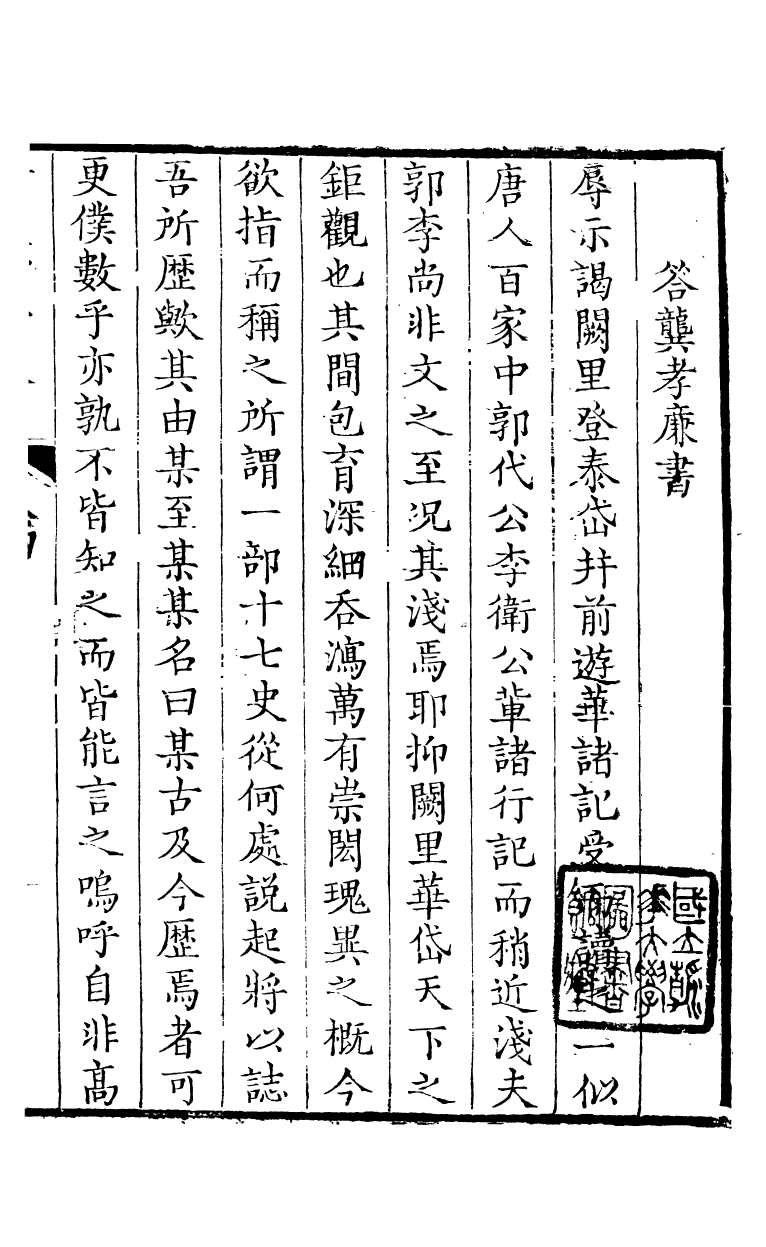 答龔孝廉書
辱示謁闕里登泰岱并前遊華諸記受讀一似
唐人百家中郭代公李衛公輩諸行記而稍近淺夫
郭李尚非文之至况其淺焉耶抑闕里華岱天下之
鉅觀也其間包育深細吞瀉萬有崇閎瑰異之概今
欲指而稱之所謂一部十七史從何處説起將以誌
吾所歴歟其由某至某某名曰某古及今歴焉者可
更僕數乎亦孰不皆知之而皆能言之嗚呼自非髙